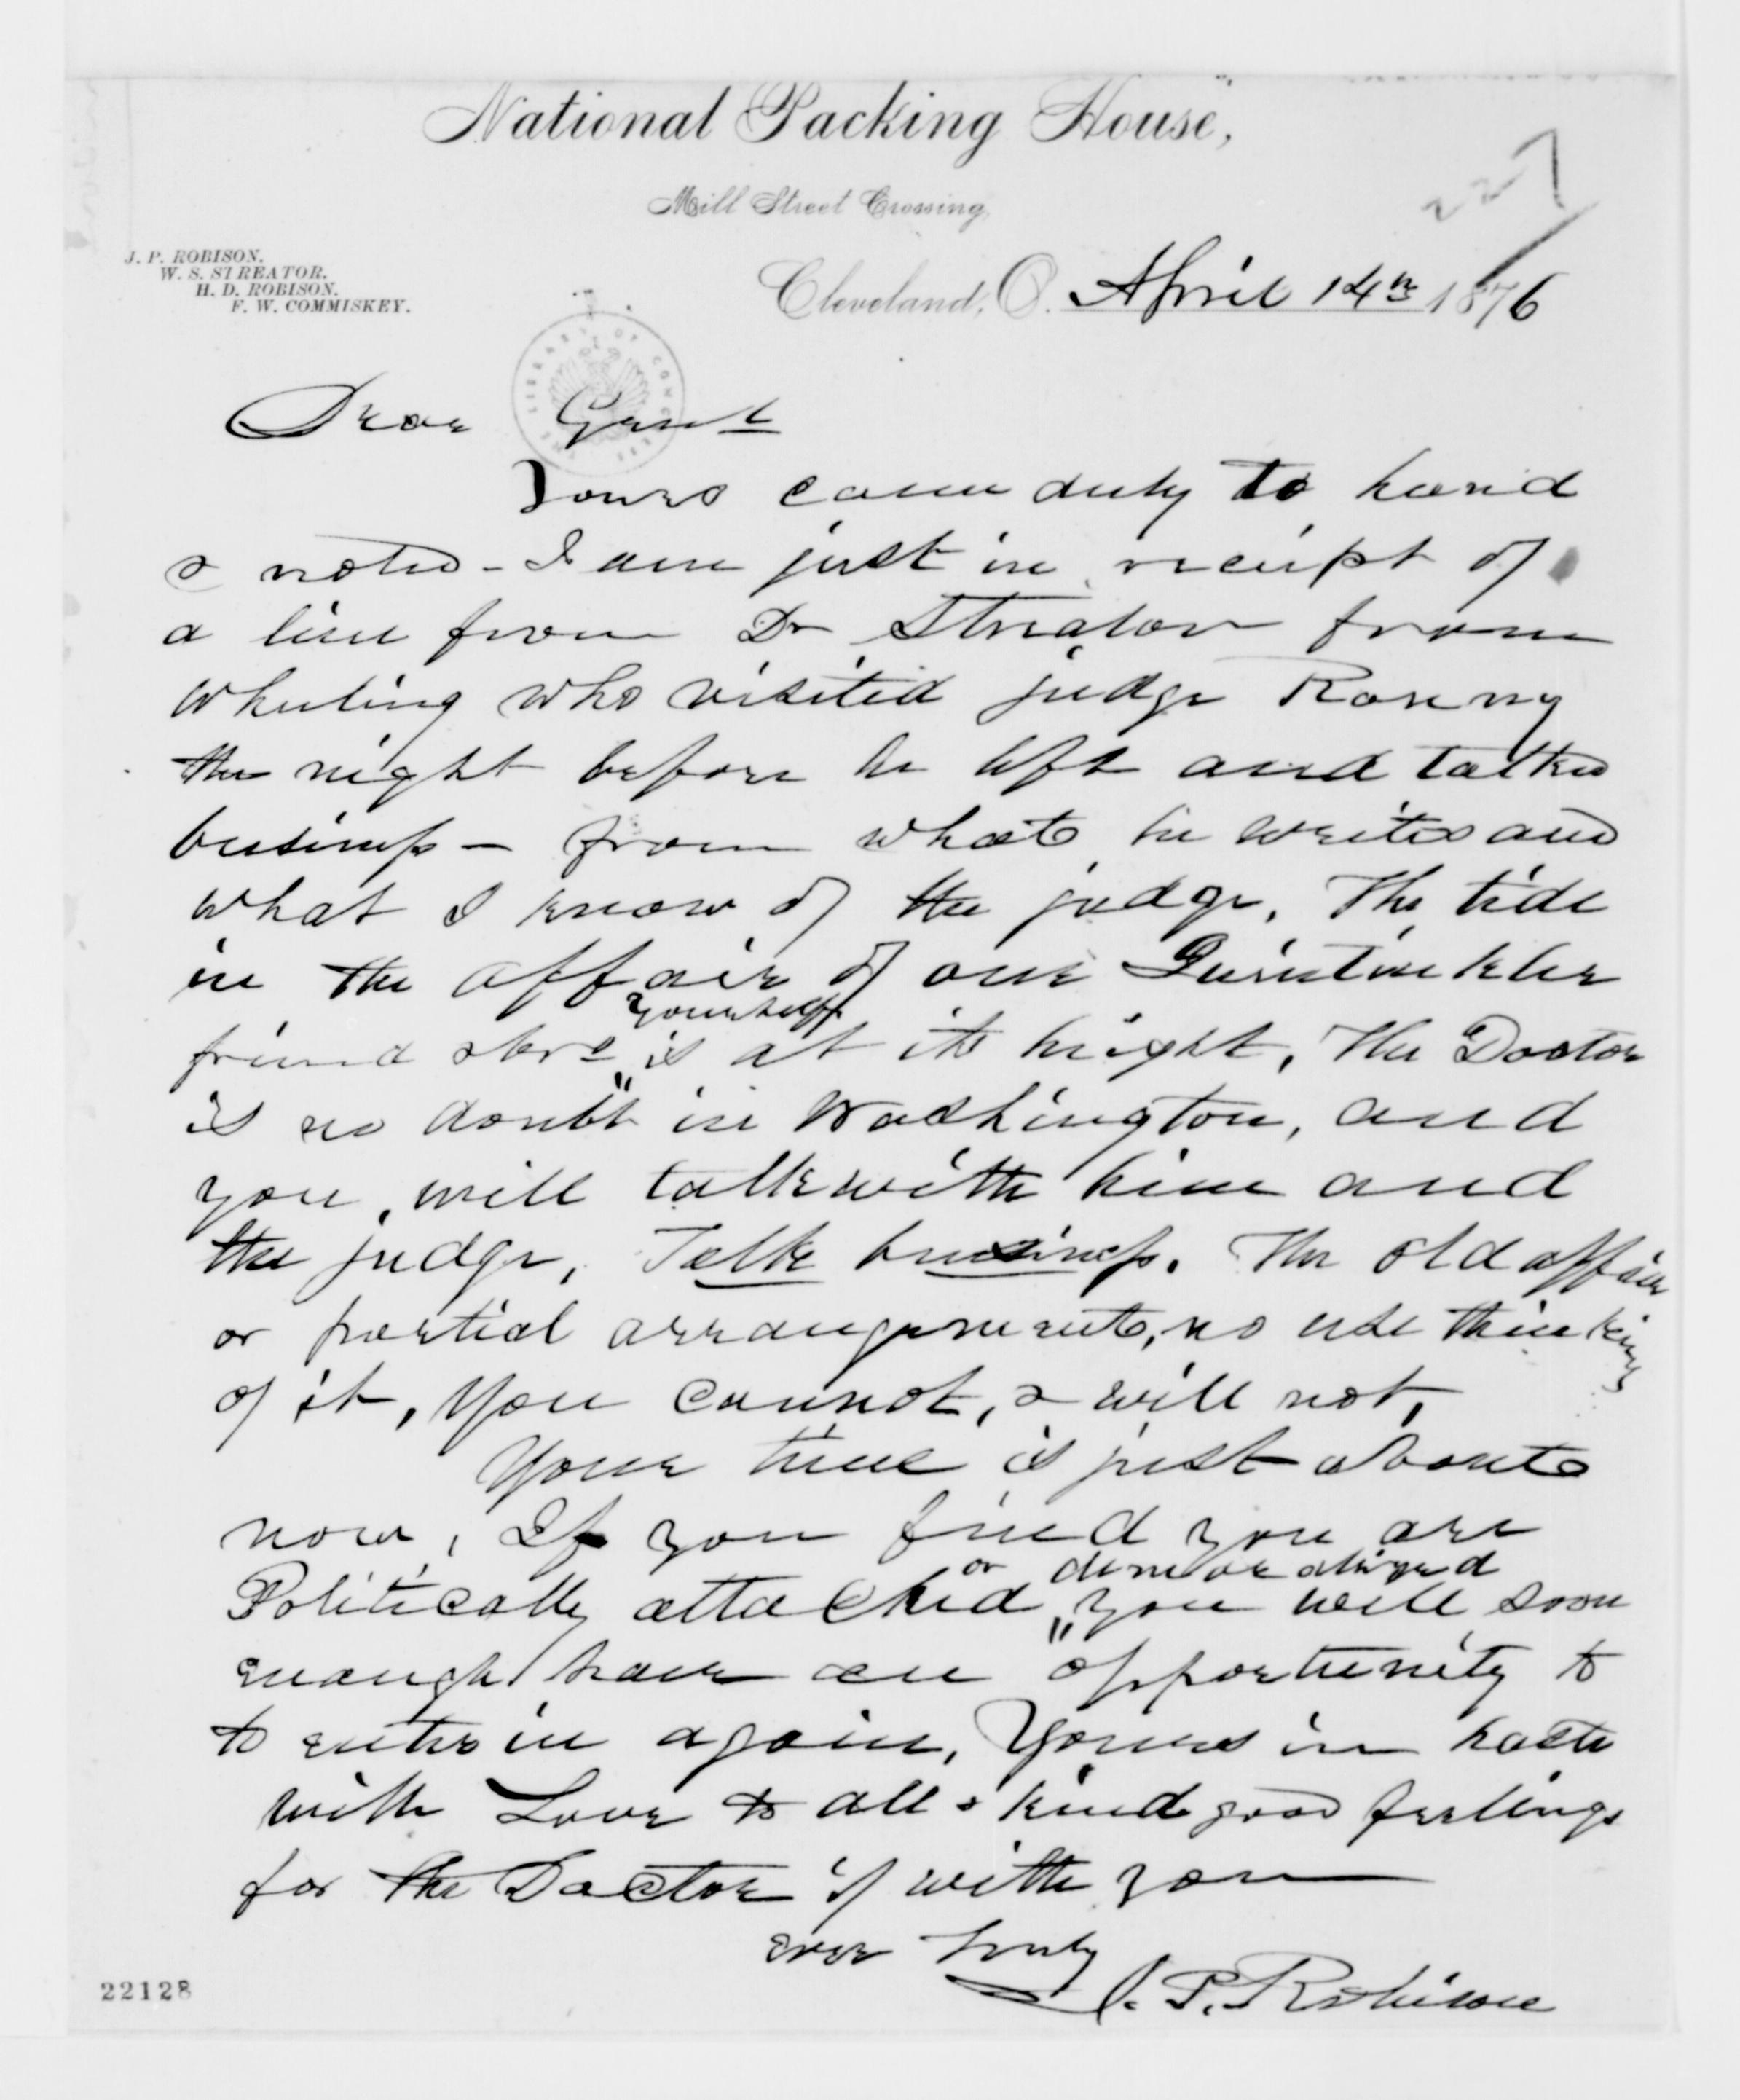 National Packing House,
Mill Street Crossing,
227
J. P. ROBISON.
W. S. STREATOR.
H. D. ROBISON.
F. W. COMMISKEY.
Cleveland, O. April 14th 1876
Dear
Yours came duly to hand
& noted - I am just in receipt of
a line from Dr Streator from
Wheeling who visited judge
the night before he left and talked
business - from what he writes and
what I know of the judge, The tide
in the affair of our
friend & yourself is at its hight, The Doctor
is no doubt in Washington, and
you will talk with him and
the judge, Talk business. The old affair
or partial arrangements, no use thinking
of it, You cannot, & will not,
Your time is just about
now, If you find you are
Politically attached or demoralized you will soon
enough have an opportunity to
to enter in again, Yours in haste
with Love to all & kind good feelings
for the Doctor if with you
ever truly
J. P. Robison
22128